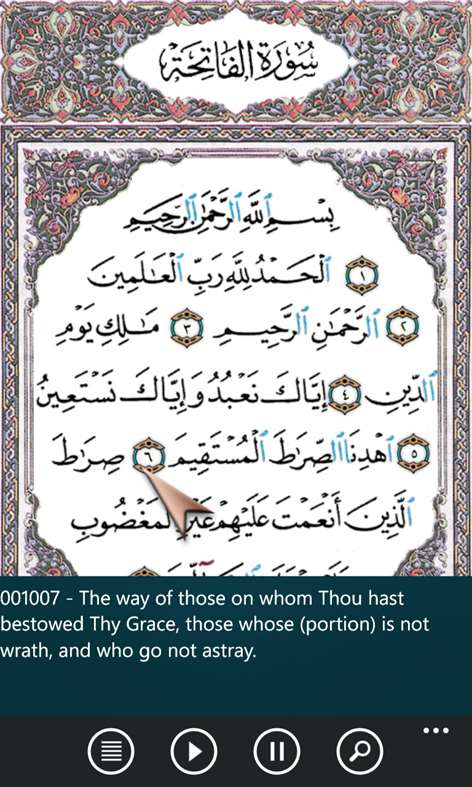 سُورَةُ الفَاتِحَةِ
بِسْمِ اللَّهِ الرَّحْمَٰنِ الرَّحِيمِ
١ الْحَمْدُ لِلَّهِ رَبِّ الْعَالَمِينَ
٢ الرَّحْمَٰنِ الرَّحِيمِ ٣ مَالِكِ يَوْمِ
الدِّينِ ٤ إِيَّاكَ نَعْبُدُ وَإِيَّاكَ نَسْتَعِينُ
٥ اهْدِنَا الصِّرَاطَ الْمُسْتَقِيمَ ٦ صِرَاطَ
الَّذِينَ أَنْعَمْتَ عَلَيْهِمْ غَيْرِ الْمَغْضُوبِ
001007 - The way of those on whom Thou hast
bestowed Thy Grace, those whose (portion) is not
wrath, and who go not astray.